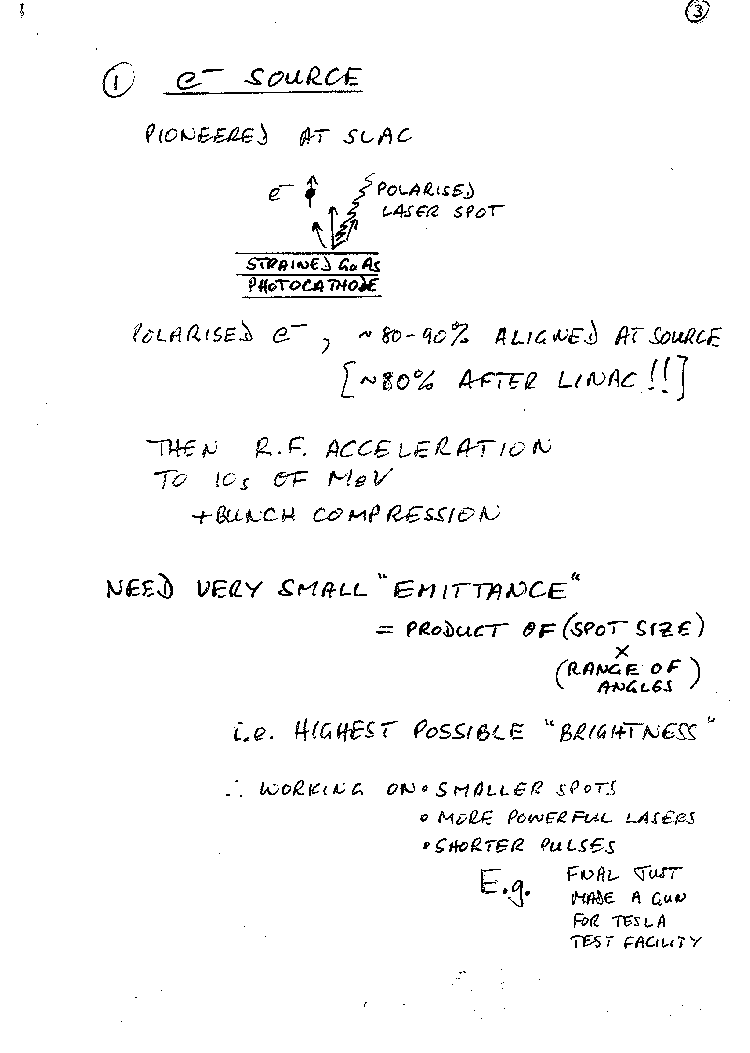 ③
① e⁻ SOURCE
PIONEERED AT SLAC
e⁻ POLARISED
LASER SPOT
STRAINED GaAs
PHOTOCATHODE
POLARISED e⁻, ~80-90% ALIGNED AT SOURCE
[~80% AFTER LINAC!!]
THEN R.F. ACCELERATION
TO 10s OF MeV
+BUNCH COMPRESSION
NEED VERY SMALL "EMITTANCE"
= PRODUCT OF (SPOT SIZE)
×
(RANGE OF
ANGLES)
i.e. HIGHEST POSSIBLE "BRIGHTNESS"
∴ WORKING ON • SMALLER SPOTS
• MORE POWERFUL LASERS
• SHORTER PULSES
E.g. FNAL JUST
MADE A GUN
FOR TESLA
TEST FACILITY